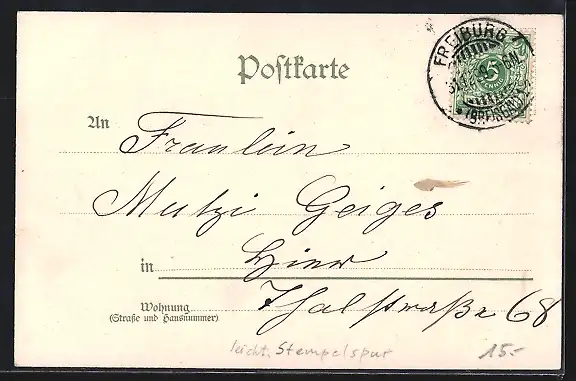 FREIBURG
(BREISGAU)
5
Postkarte
An Fraulein
Mutzi Geiges
in Hier
Wohnung Thalstraße 68
(Straße und Hausnummer)
leicht. Stempelspur 15.-